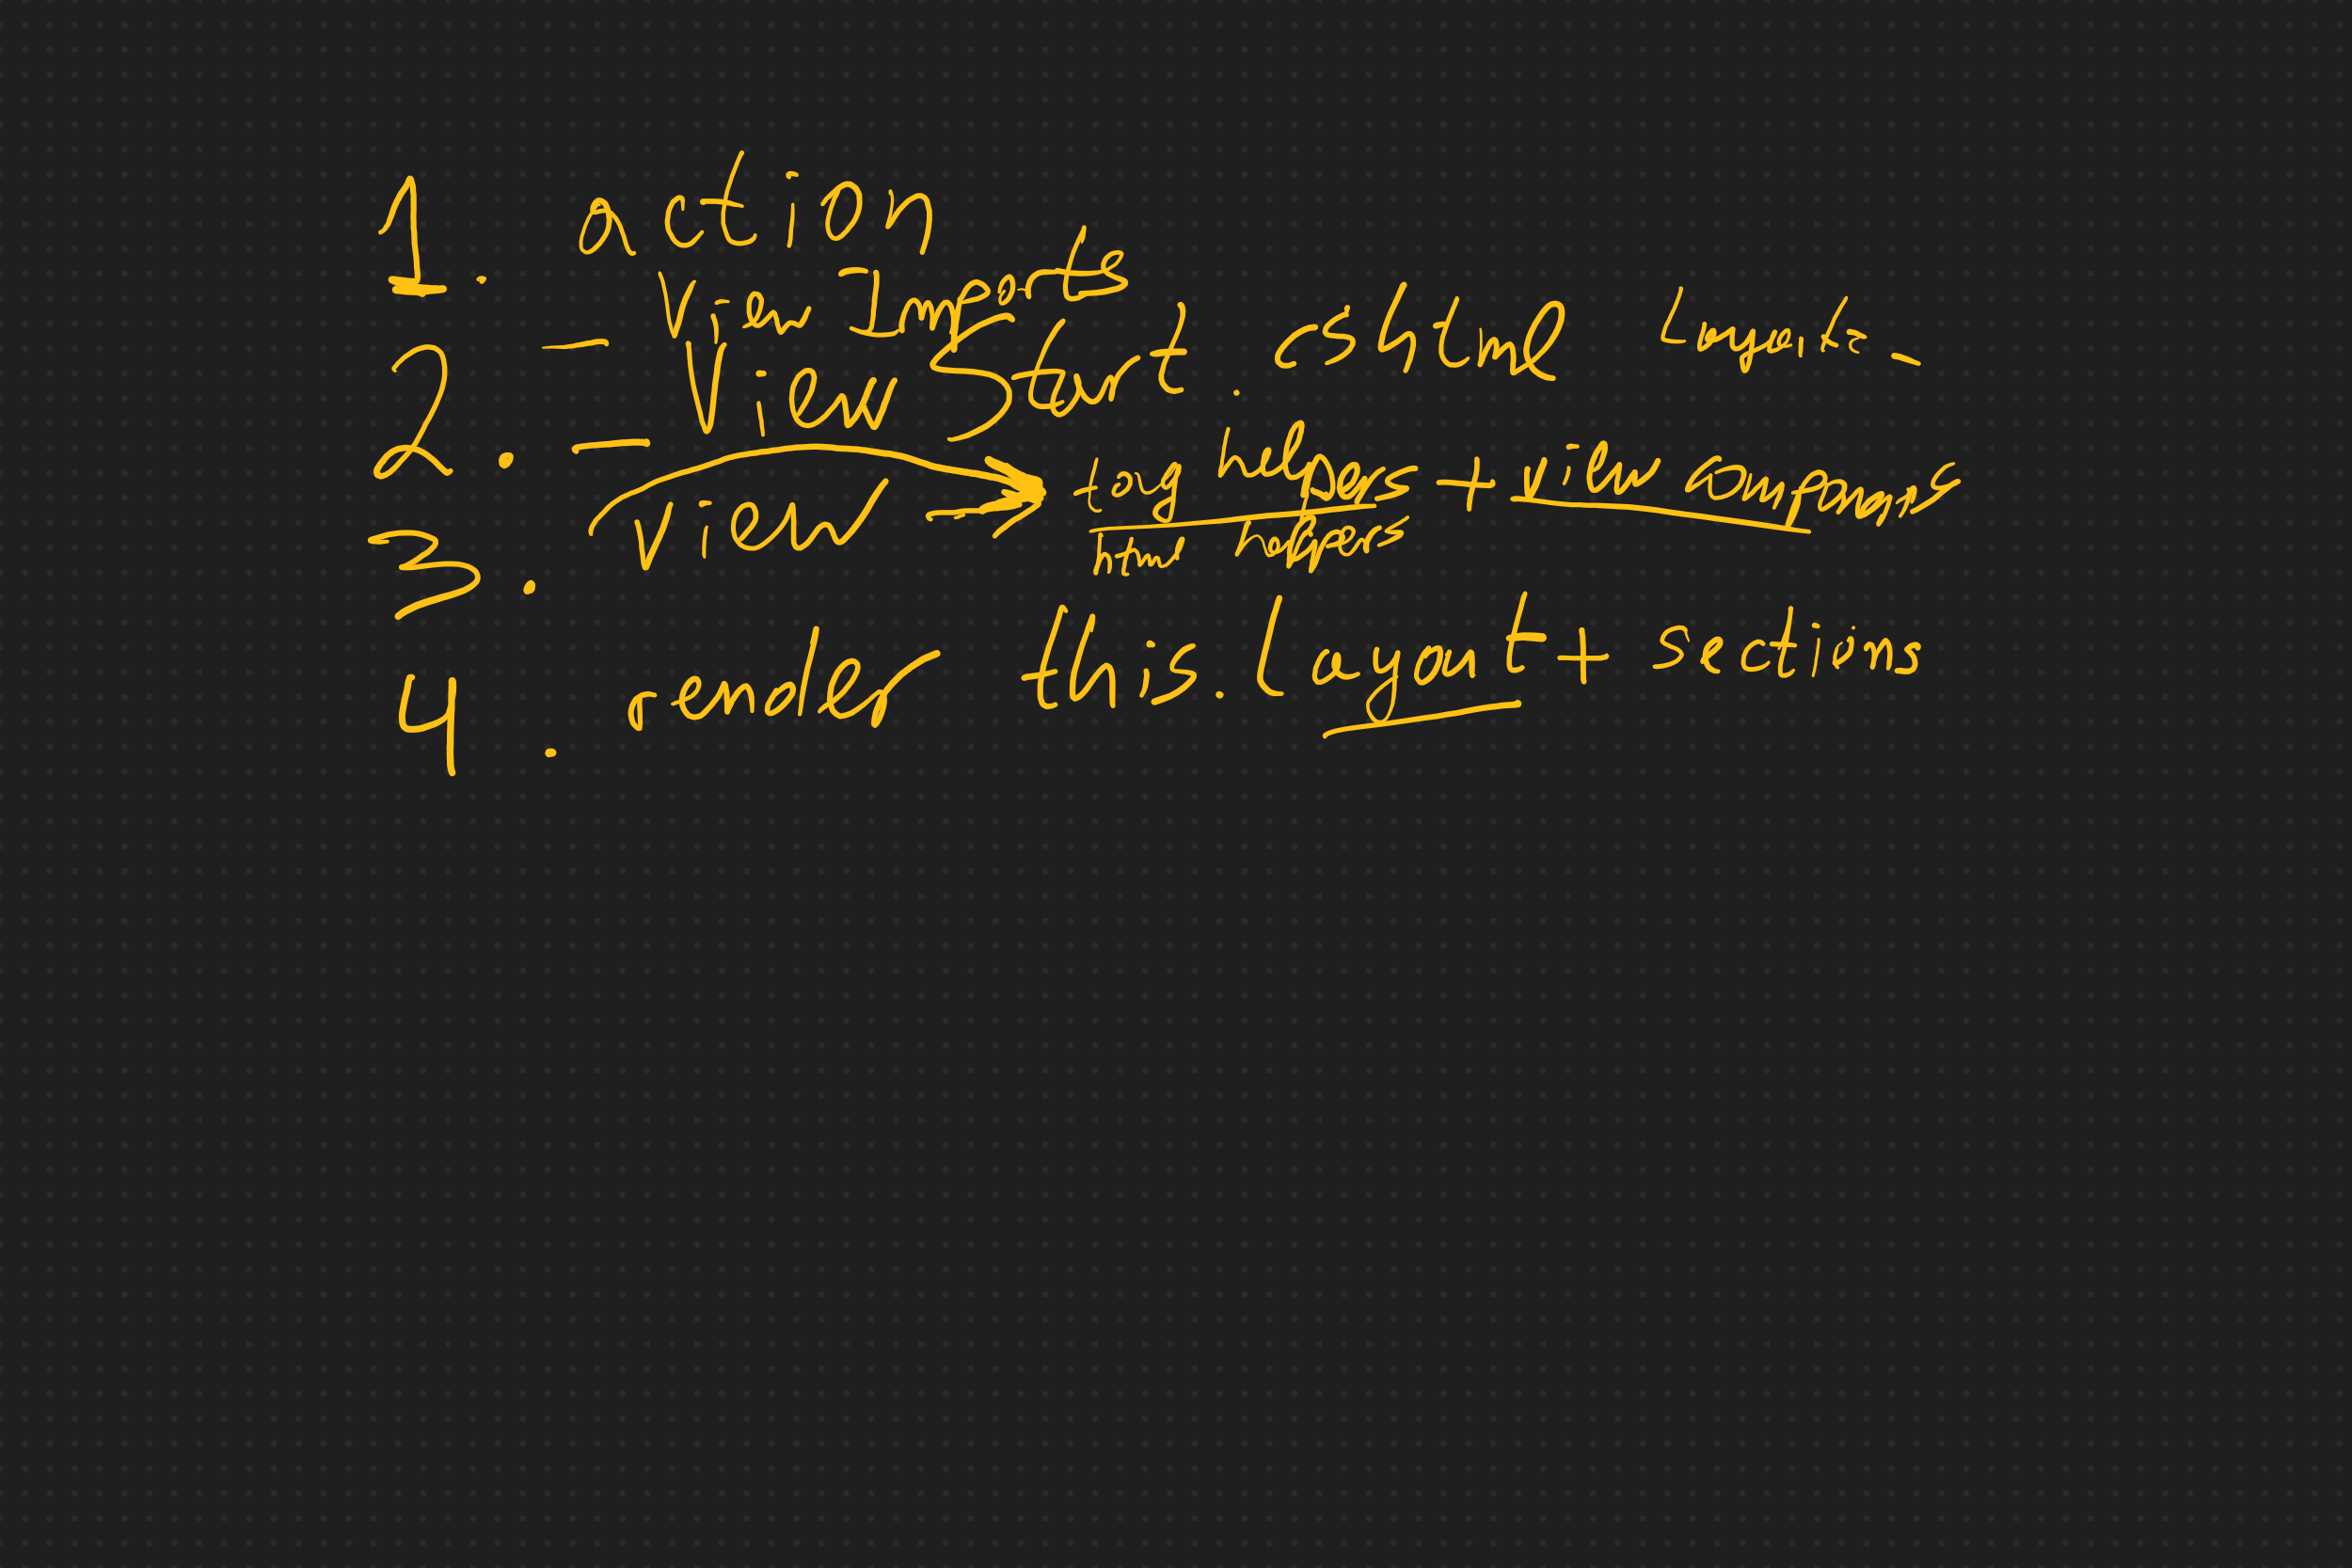 1. action
_ViewImports
2. _ViewStart.cshtml Layout = _
3. view → tag helpers + view components
html helpers
4. render this.layout + sections